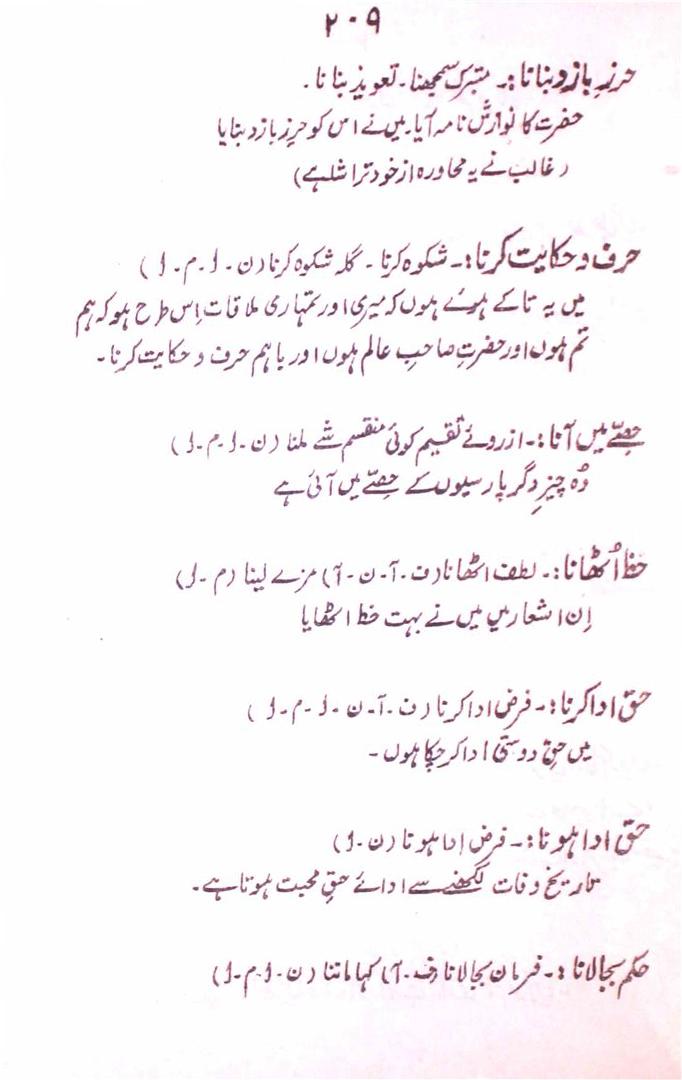 ۲۰۹
حرزِ بازو بنانا:۔ متبرک سمجھنا۔ تعویذ بنانا۔
حضرت کا نوازش نامہ آیا۔ میں نے اس کو حرزِ بازو بنایا
(غالب نے یہ محاورہ از خود تراشا ہے)
حرف و حکایت کرنا:۔ شکوہ کرنا۔ گلہ شکوہ کرنا (ن۔ ل۔ م۔ ل)
میں یہ تاکے ہوئے ہوں کہ میری اور تمہاری ملاقات اِس طرح ہو کہ ہم
تم ہوں اور حضرتِ صاحبِ عالم ہوں اور باہم حرف و حکایت کرنا۔
حِصّے میں آنا:۔ ازروئے تقسیم کوئی منقسم شے ملنا (ن۔ ل۔ م۔ ل)
وُہ چیزِ دگر پارسیوں کے حِصّے میں آئی ہے
حظ اُٹھانا:۔ لطف اٹھانا (ف۔ آ۔ ن۔ آ) مزے لینا (م۔ ل)
اِن اشعار میں میں نے بہت حظ اٹھایا
حق ادا کرنا:۔ فرض ادا کرنا (ف۔ آ۔ ن۔ ل۔ م۔ ل)
میں حقِ دوستی ادا کر چکا ہوں۔
حق ادا ہونا:۔ فرض ادا ہونا (ن۔ ل)
تاریخ وفات لکھنے سے ادائے حقِ محبت ہوتا ہے۔
حکم بجا لانا:۔ فرمان بجا لانا (ف۔ آ) کہا ماننا (ن۔ ل۔ م۔ ل)